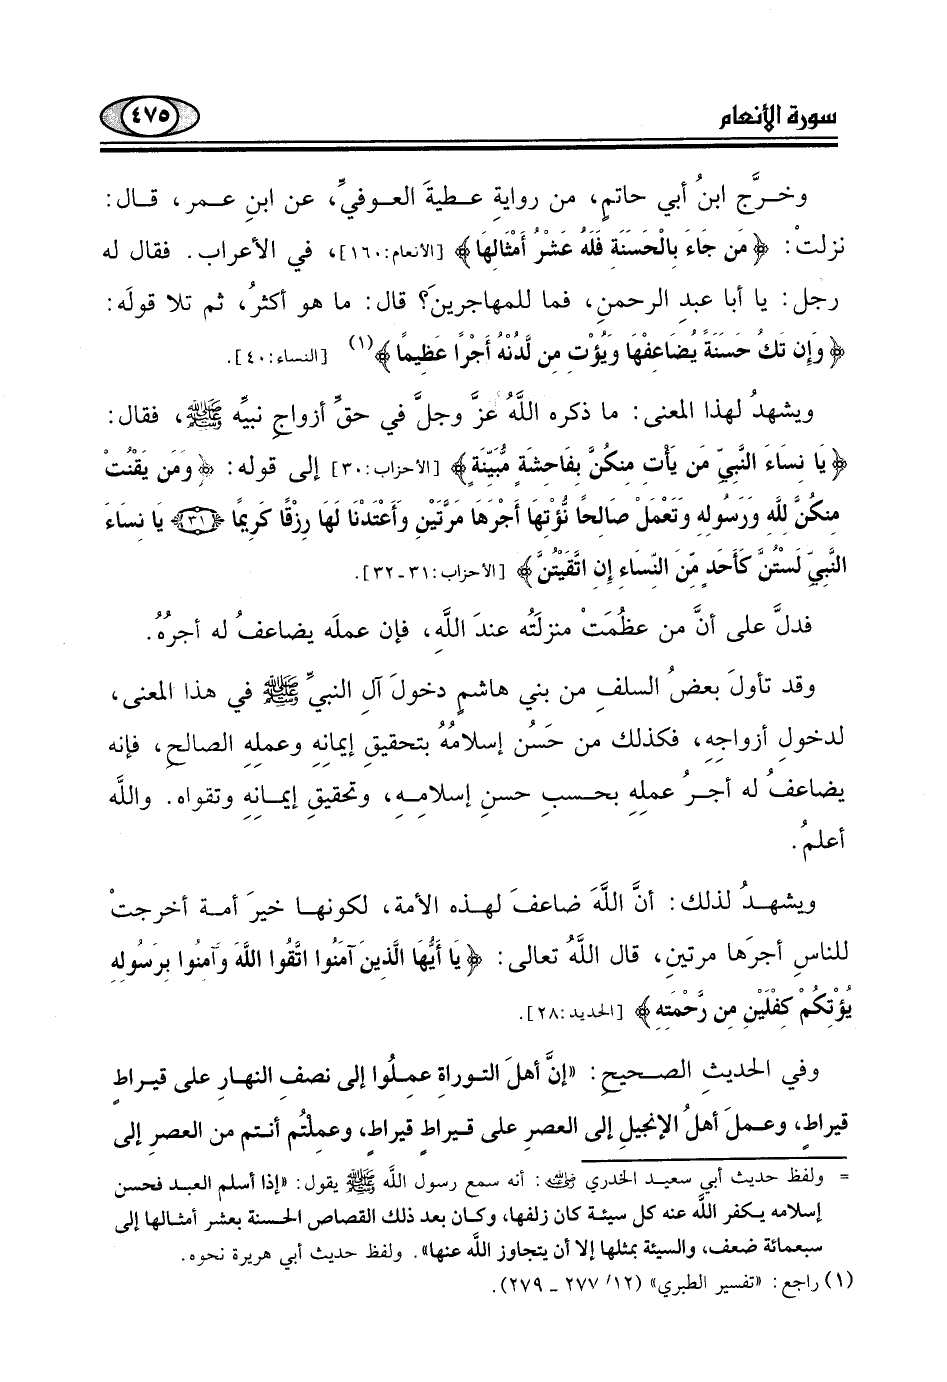 سورة الأنعام
٤٧٥
وخرَّج ابنُ أبي حاتمٍ، من روايةِ عطيةَ العوفيِّ، عن ابنِ عمر، قال:
نزلتْ: ﴿مَن جَاءَ بِالْحَسَنَةِ فَلَهُ عَشْرُ أَمْثَالِهَا﴾ [الأنعام:١٦٠]، في الأعراب. فقال له
رجل: يا أبا عبدِ الرحمنِ، فما للمهاجرينَ؟ قال: ما هو أكثرُ، ثم تلا قولَه:
﴿وَإِن تَكُ حَسَنَةً يُضَاعِفْهَا وَيُؤْتِ مِن لَّدُنْهُ أَجْرًا عَظِيمًا﴾(١) [النساء:٤٠].
ويشهدُ لهذا المعنى: ما ذكره اللَّهُ عزَّ وجلَّ في حقِّ أزواجِ نبيِّه ﷺ، فقال:
﴿يَا نِسَاءَ النَّبِيِّ مَن يَأْتِ مِنكُنَّ بِفَاحِشَةٍ مُّبَيِّنَةٍ﴾ [الأحزاب:٣٠] إلى قوله: ﴿وَمَن يَقْنُتْ
مِنكُنَّ لِلَّهِ وَرَسُولِهِ وَتَعْمَلْ صَالِحًا نُّؤْتِهَا أَجْرَهَا مَرَّتَيْنِ وَأَعْتَدْنَا لَهَا رِزْقًا كَرِيمًا ﴿٣١﴾ يَا نِسَاءَ
النَّبِيِّ لَسْتُنَّ كَأَحَدٍ مِّنَ النِّسَاءِ إِنِ اتَّقَيْتُنَّ﴾ [الأحزاب:٣١-٣٢].
فدلَّ على أنَّ من عظُمَتْ منزلتُه عندَ اللَّهِ، فإن عملَه يضاعفُ له أجرُهُ.
وقد تأولَ بعضُ السلفِ من بني هاشمٍ دخولَ آلِ النبيِّ ﷺ في هذا المعنى،
لدخولِ أزواجِهِ، فكذلك من حَسُن إسلامُهُ بتحقيقِ إيمانِهِ وعملِهِ الصالحِ، فإنه
يضاعفُ له أجرُ عملِهِ بحسبِ حسنِ إسلامِهِ، وتحقيقِ إيمانِهِ وتقواه. واللَّه
أعلمُ.
ويشهدُ لذلك: أنَّ اللَّهَ ضاعفَ لهذه الأمة، لكونها خيرَ أمة أخرجتْ
للناسِ أجرَها مرتينِ، قال اللَّهُ تعالى: ﴿يَا أَيُّهَا الَّذِينَ آمَنُوا اتَّقُوا اللَّهَ وَآمِنُوا بِرَسُولِهِ
يُؤْتِكُمْ كِفْلَيْنِ مِن رَّحْمَتِهِ﴾ [الحديد:٢٨].
وفي الحديثِ الصحيحِ: «إنَّ أهلَ التوراةِ عملُوا إلى نصفِ النهارِ على قيراطٍ
قيراطٍ، وعملَ أهلُ الإنجيلِ إلى العصرِ على قيراطٍ قيراطٍ، وعملْتُم أنتم من العصرِ إلى
= ولفظ حديث أبي سعيد الخدري رضي الله عنه: أنه سمع رسول اللَّه ﷺ يقول: «إذا أسلم العبد فحسن
إسلامه يكفر اللَّه عنه كل سيئة كان زلفها، وكان بعد ذلك القصاص الحسنة بعشر أمثالها إلى
سبعمائة ضعف، والسيئة بمثلها إلا أن يتجاوز اللَّه عنها». ولفظ حديث أبي هريرة نحوه.
(١) راجع: «تفسير الطبري» (١٢/ ٢٧٧ - ٢٧٩).